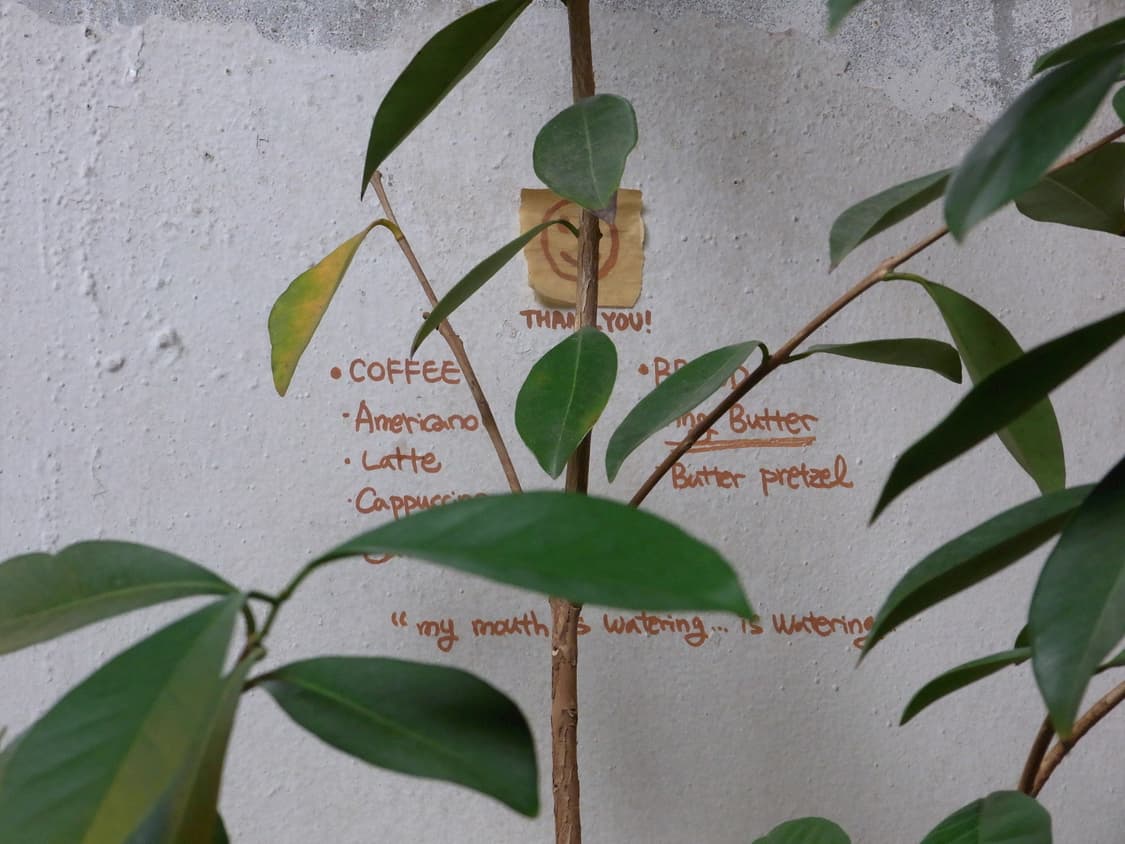 THANK YOU!
• COFFEE
· Americano
· Latte
· Cappuccino
• BREAD
Butter
Butter pretzel
“my mouth is watering... is watering